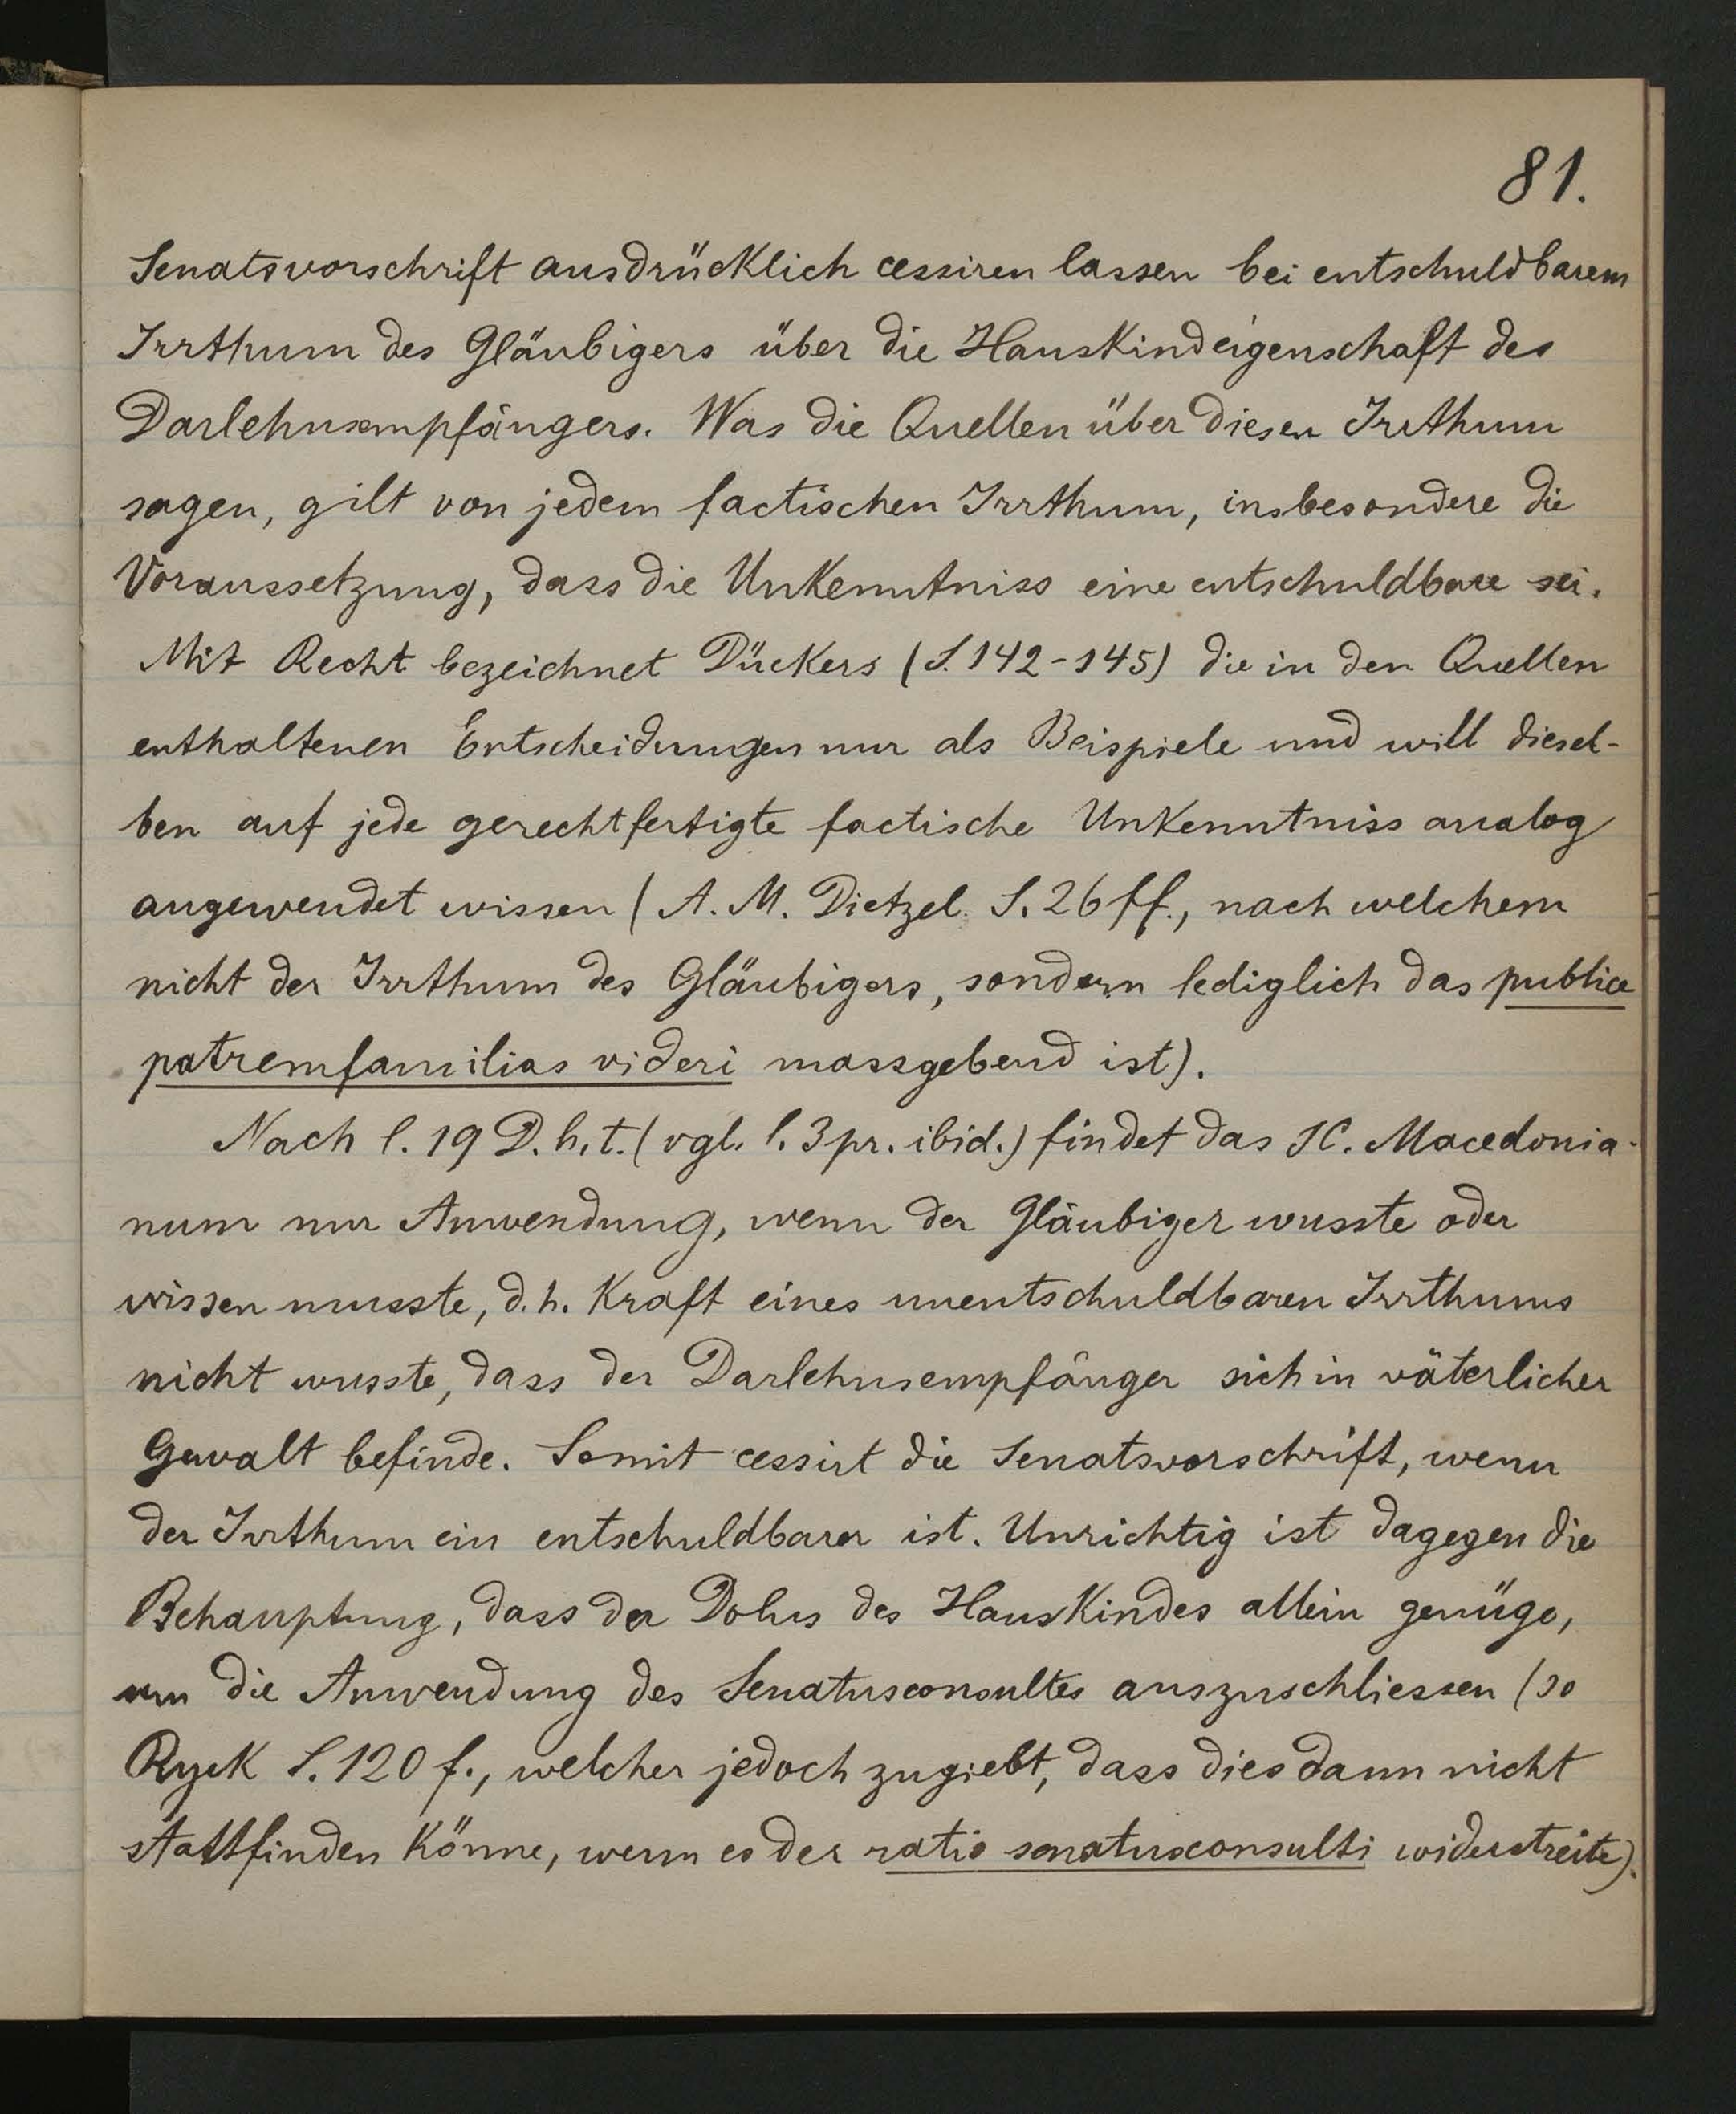 81.
Senatsvorschrift ausdrücklich cessiren lassen bei entschuldbarem
Irrthum des Gläubigers über die Hauskindeigenschaft des
Darlehnsempfängers. Was die Quellen über diesen Irrthum
sagen, gilt von jedem factischen Irrthum, insbesondere die
Voraussetzung, dass die Unkenntniss eine entschuldbare sei.
Mit Recht bezeichnet Dückers (S. 142-145) die in den Quellen
enthaltenen Entscheidungen nur als Beispiele und will diesel-
ben auf jede gerechtfertigte factische Unkenntniss analog
angewendet wissen (A. M. Dietzel S. 26 ff., nach welchem
nicht der Irrthum des Gläubigers, sondern lediglich das publice
patremfamilias videri massgebend ist).
Nach l. 19 D. h. t. (vgl. l. 3 pr. ibid.) findet das SC. Macedonia-
num nur Anwendung, wenn der Gläubiger wusste oder
wissen musste, d. h. Kraft eines unentschuldbaren Irrthums
nicht wusste, dass der Darlehnsempfänger sich in väterlicher
Gewalt befinde. Somit cessirt die Senatsvorschrift, wenn
der Irrthum ein entschuldbarer ist. Unrichtig ist dagegen die
Behauptung, dass der Dolus des Hauskindes allein genüge,
um die Anwendung des Senatusconsultes auszuschliessen (so
Ryck S. 120 f., welcher jedoch zugiebt, dass dies dann nicht
stattfinden könne, wenn es der ratio senatusconsulti widerstreite).